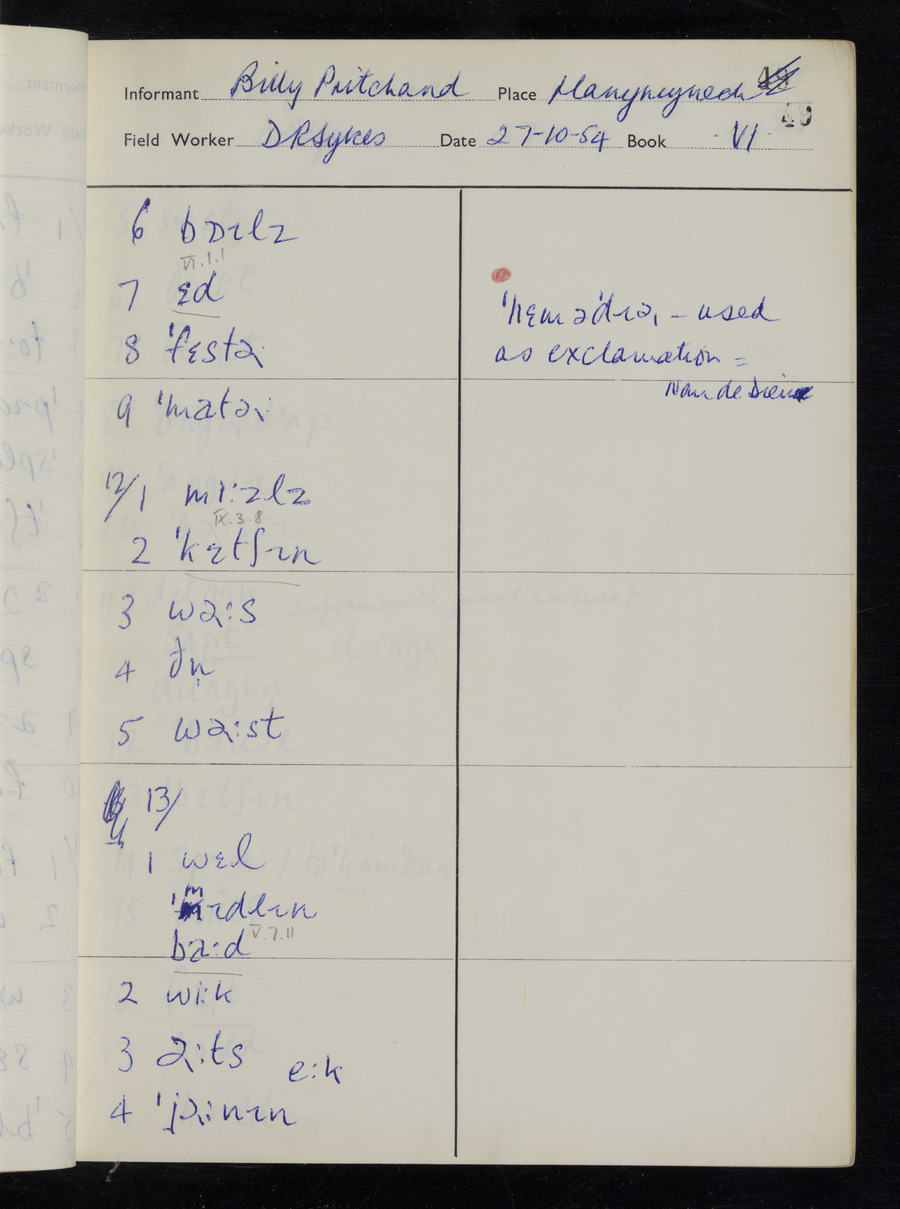 Informant Billy Pritchard Place Llanymynech
49
Field Worker DRSykes Date 27-10-54 Book VI
6 bɒɪlz
VI.1.1
7 ɛd
8 ˈfɛstə
9 ˈmatə
12/1 mi:zlz
IX.3.8
2 ˈkɛtʃɪn
3 wə:s
4 ðn̩
5 wə:st
13/
1 wɛl
ˈmɪdlɪn
V.7.11
ba:d
2 wi:k
3 ə:ts e:k
4 ˈjə:nɪn
- used
as exclamation =
Nom de Dieu